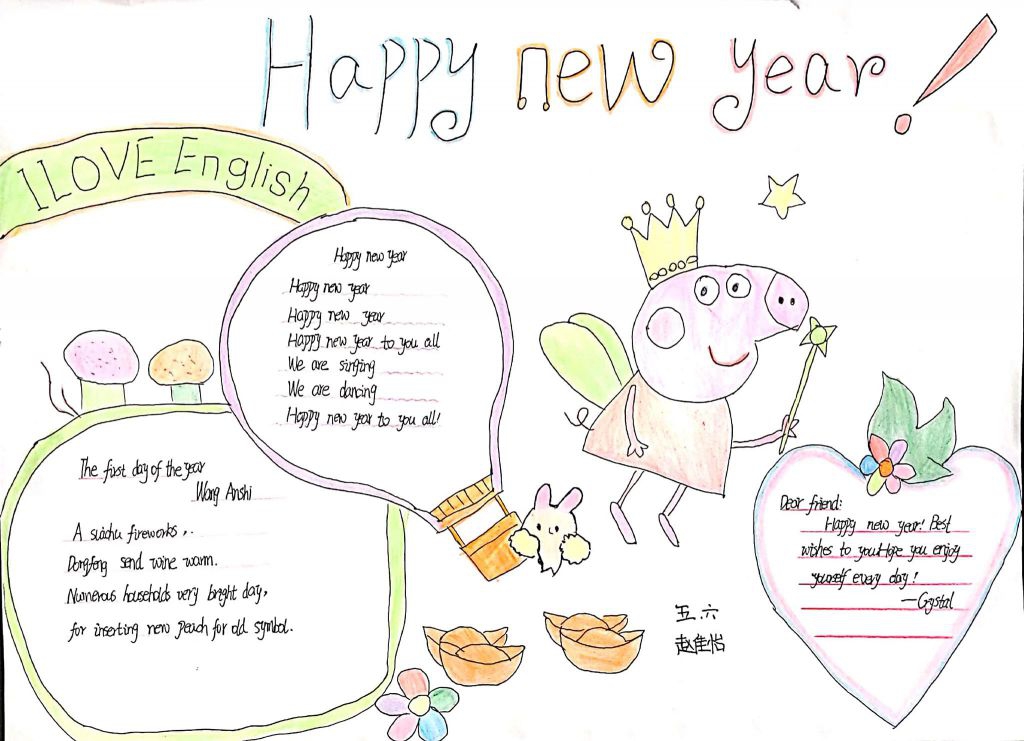 Happy new year!
I LOVE English
Happy new year
Happy new year
Happy new year
Happy new year to you all
We are singing
We are dancing
Happy new year to you all!
The first day of the year
Wang Anshi
A suichu fireworks,..
Dongfeng send wine warm.
Numerous households very bright day,
for inserting new peach for old symbol.
Dear friend:
Happy new year! Best
wishes to you!Hope you enjoy
yourself every day!
—Crystal
五.六
赵佳怡